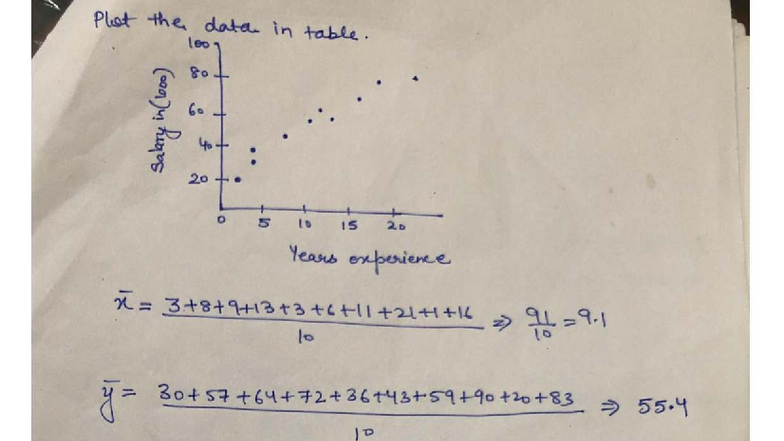 Plot the data in table.
100
80
60
40
20
Salary in (1000)
0 5 10 15 20
Years experience
x̄ = 3+8+9+13+3+6+11+21+1+16 / 10 ⇒ 91/10 = 9.1
ȳ = 30+57+64+72+36+43+59+90+20+83 / 10 ⇒ 55.4